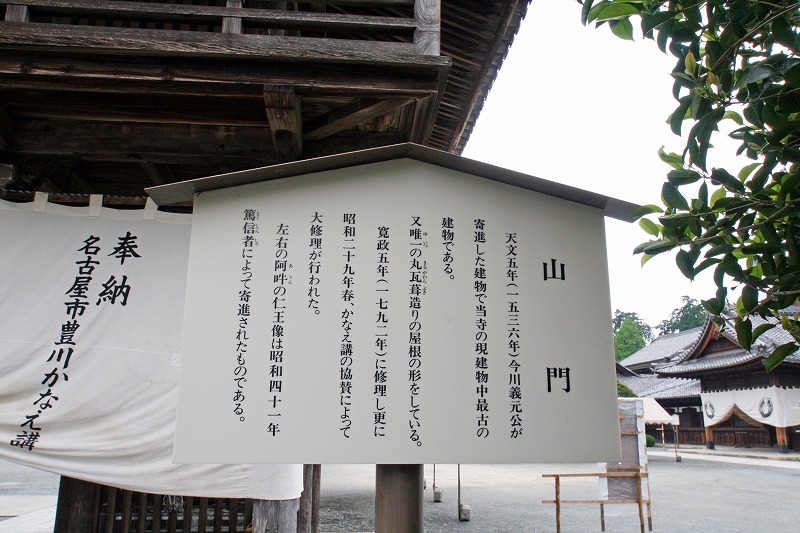 山門
天文五年(一五三六年)今川義元公が
寄進した建物で当寺の現建物中最古の
建物である。
又唯一の丸瓦葺造りの屋根の形をしている。
寛政五年(一七九二年)に修理し更に
昭和二十九年春、かなえ講の協賛によって
大修理が行われた。
左右の阿吽の仁王像は昭和四十一年
篤信者によって寄進されたものである。
奉納
名古屋市豊川かなえ講